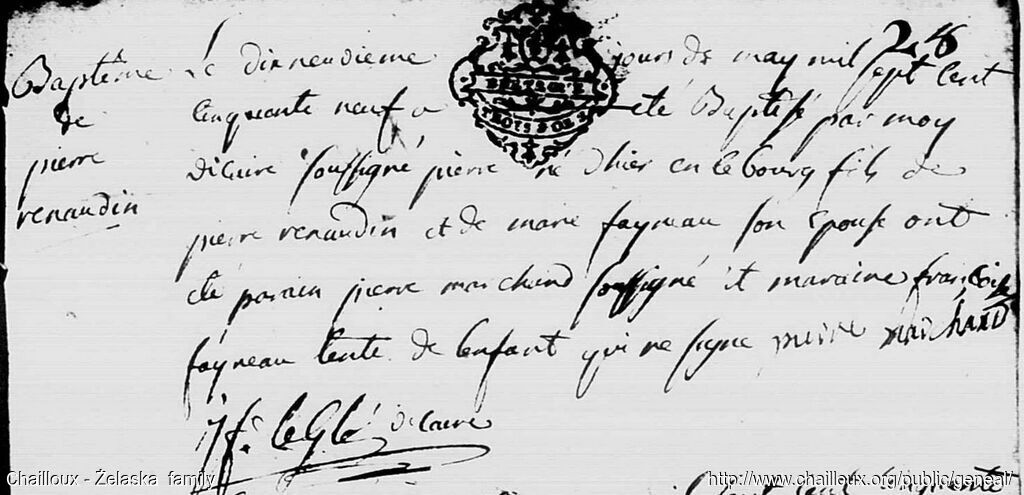 28
Baptême
de
pierre
renaudin
Le dixneuvieme jours de may mil sept cent
cinquante neuf a eté Baptisé par moy
vicaire soussigné pierre né d'hier en le bourg fils de
pierre renaudin et de marie fayneau son epouse ont
eté parain pierre marchand soussigné et maraine francoise
fayneau tente de l'enfant qui ne signe pierre marchand
vicaire
Chailloux - Żelaska family
http://www.chailloux.org/public/geneal/